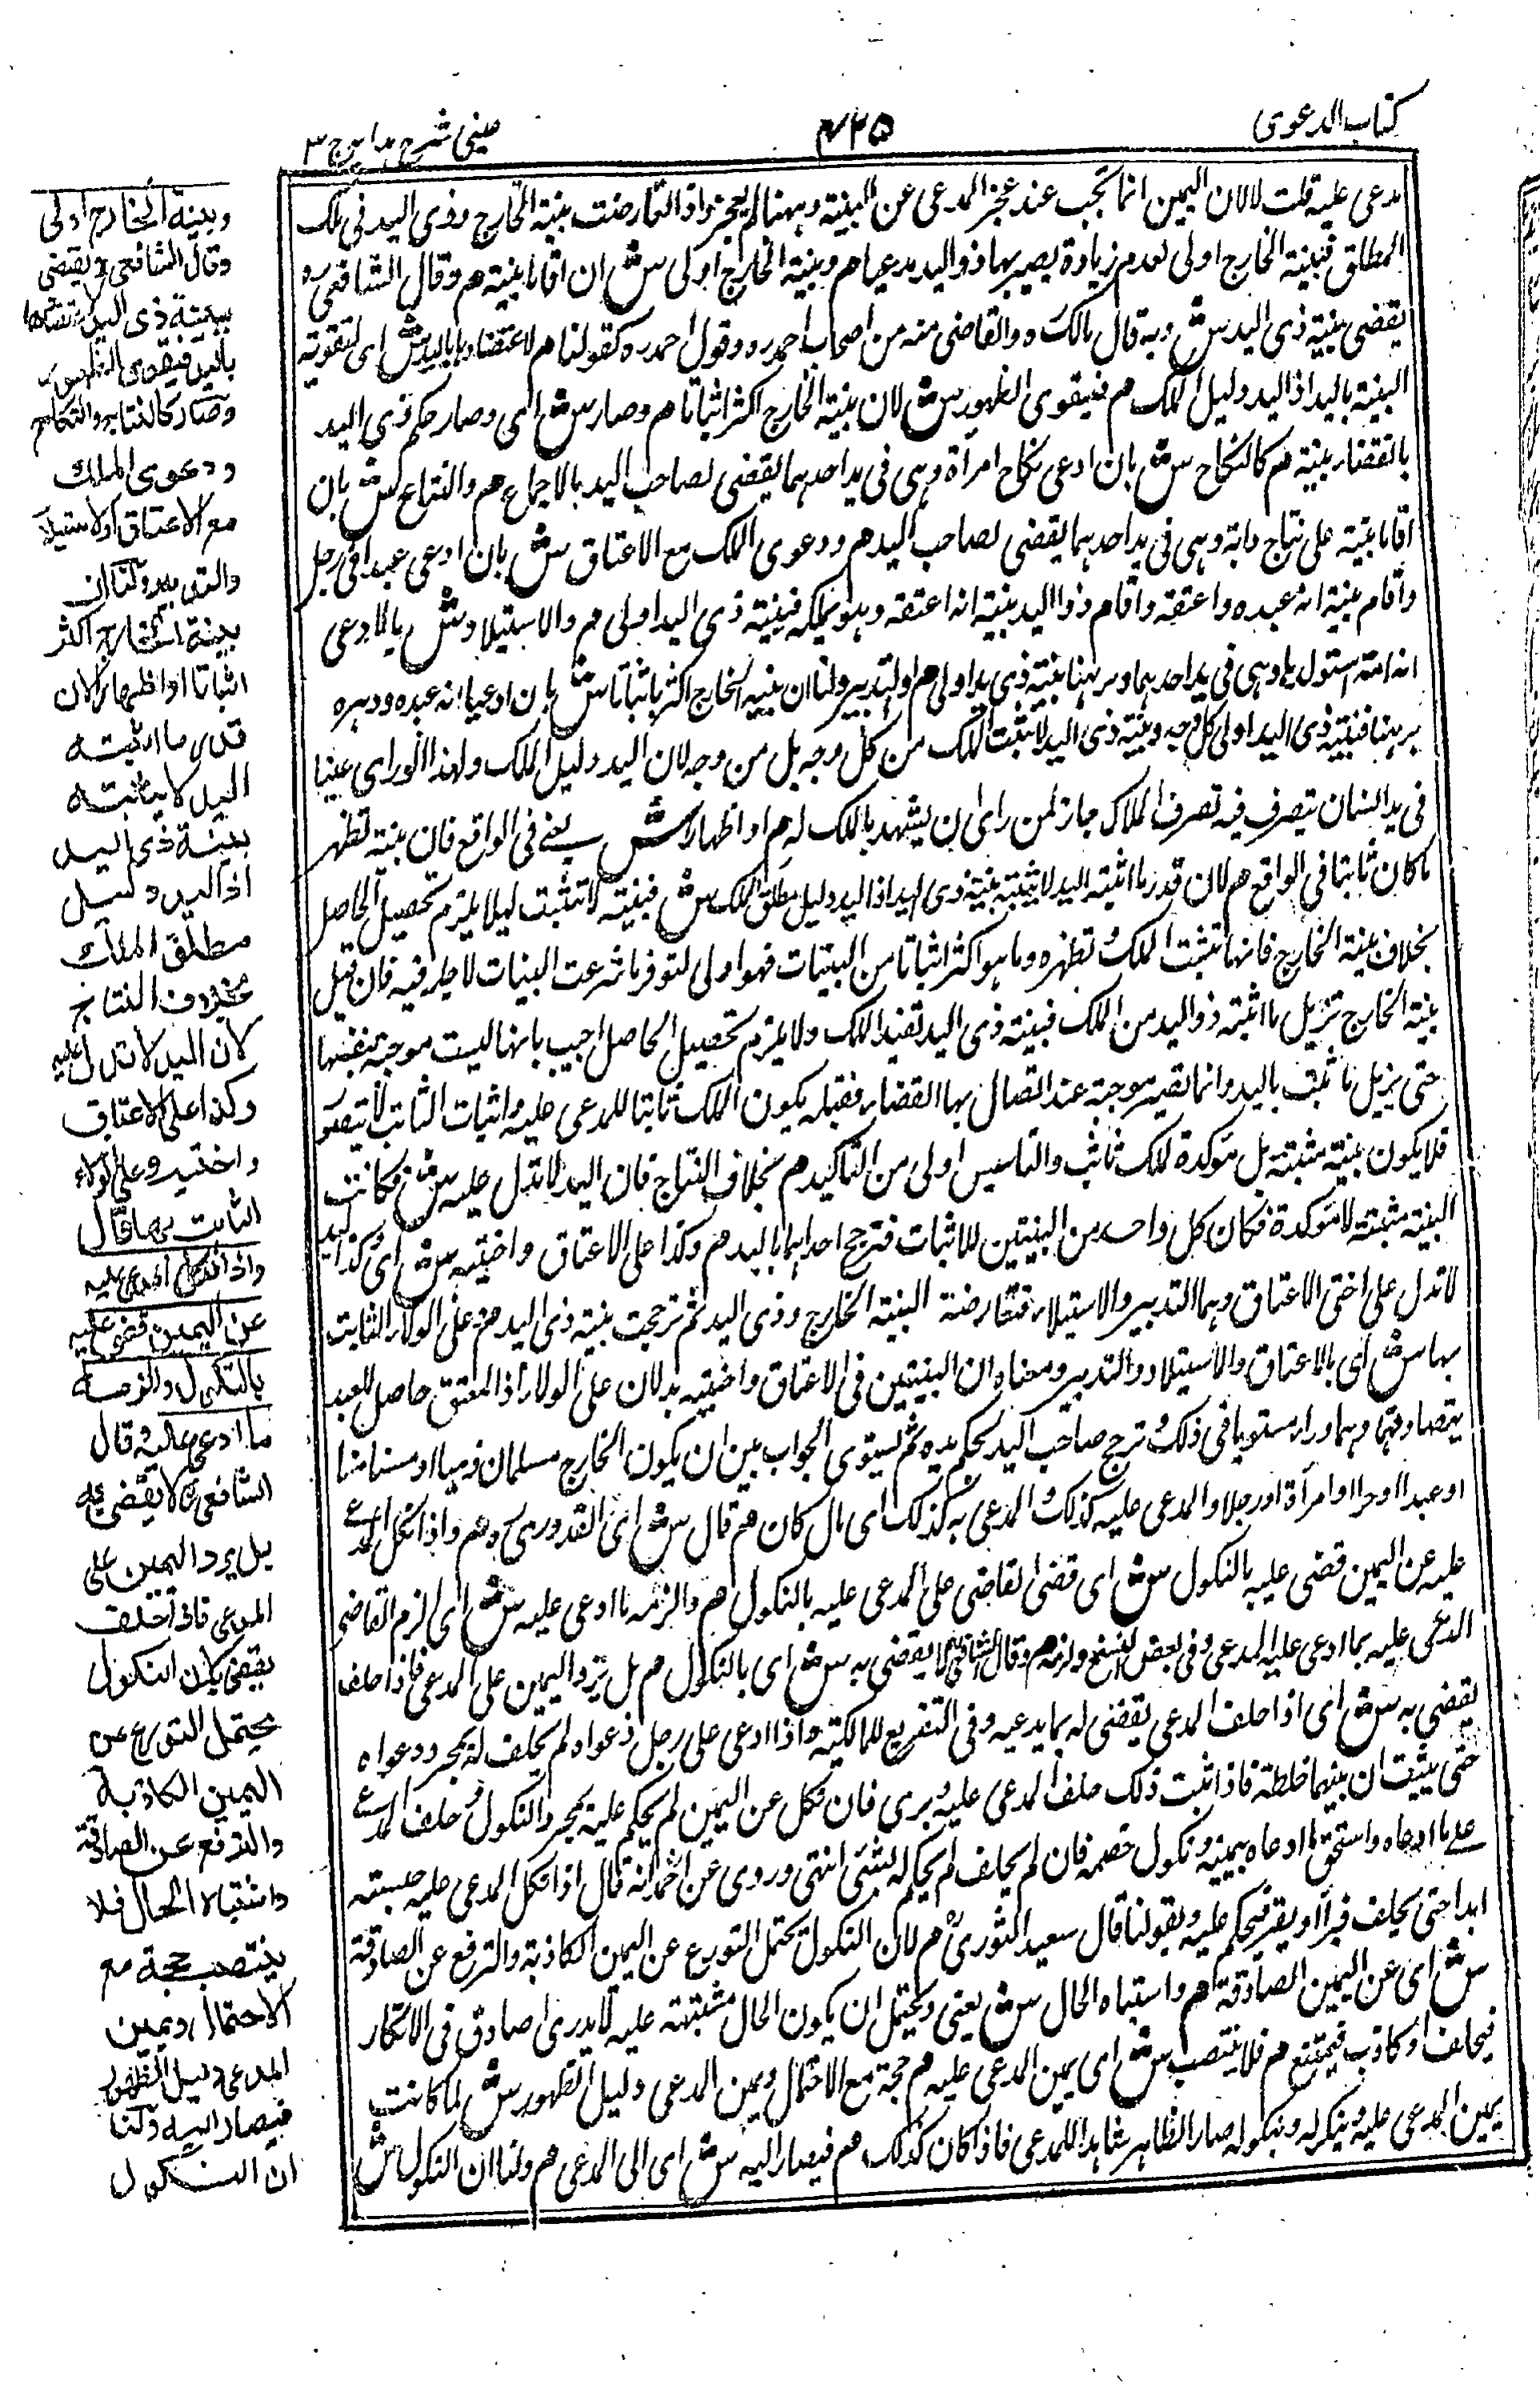 كتاب الدعوى
عينى شرح هدايہ ج ٣
مدعى عليه قلت لا لان اليمين انما تجب عند عجز المدعى عن البينة وههنا لم يعجز واذا تعارضت بينة الخارج وذى اليد فى ملك
المطلق فبينة الخارج اولى لعدم زيادة يصير بها ذو اليد مدعيا هم وبينة الخارج اولى ش ان اقاما بينة هم وقال الشافعى ره
يقضى ببينة ذى اليد ش وبه قال مالك ره والقاضى منه من اصحاب احمد ره وقول احمد ره كقولنا هم لاعتضادها باليد ش اى لتقوية
البينة باليد اذ اليد دليل الملك هم فيقوى الظهور ش لان بينة الخارج اكثر اثباتا هم وصار ش اى وصار حكم ذى اليد
بالقضاء ببينة هم كالنكاح ش بان ادعى نكاح امرأة وهى فى يد احدهما يقضى لصاحب اليد بالاجماع هم والنتاج ش بان
اقاما بينة على نتاج دابة وهى فى يد احدهما يقضى لصاحب اليد هم ودعوى الملك مع الاعتاق ش بان ادعى عبدا فى رجل
واقام بينة انه عبده واعتقه واقام ذو اليد بينة انه اعتقه وهو يملكه فبينة ذى اليد اولى هم والاستيلاد ش
انه امته استولدها وهى فى يد احدهما وبرهنا بينة ذى يد اولى هم والتدبير ولنا ان بينة الخارج اكثر اثباتا ش بان ادعيا انه عبده ودبره
برهنا فبينة ذى اليد اولى وبينة ذى اليد لا تثبت الملك من كل وجه بل من وجه لان اليد دليل الملك ولهذا لو راى عينا
فى يد انسان يتصرف فيه تصرف الملاك جاز لمن راى ان يشهد بالملك له هم او اظهارا ش يعنى فى الواقع فان بينة تظهر
ما كان ثابتا فى الواقع هم لان قدر ما اثبته اليد لا يثبته بينة ذى اليد اذ اليد دليل مطلق الملك ش فبينته لا تثبت لئلا يلزم تحصيل الحاصل
بخلاف بينة الخارج فانها تثبت الملك وتظهره وما هو اكثر اثباتا من البينات فهو اولى لتوفر ما شرعت البينات لاجله فيه فان قيل
بينة الخارج تزيل ما اثبته ذو اليد من الملك فبينة ذى اليد تفيد الملك ولا يلزم تحصيل الحاصل اجيب بانها ليست موجبة بنفسها
حتى يزيل ما ثبت باليد وانما تصير موجبة عند اتصال بها القضاء فقبله يكون الملك ثابتا للمدعى عليه واثبات الثابت لا يتصور
فلا يكون بينته مثبتة بل مؤكدة لملك ثابت والتاسيس اولى من التاكيد هم بخلاف النتاج فان اليد لا تدل عليه ش فكانت
البينة مثبتة لا مؤكدة فكان كل واحد من البينتين للاثبات فترجح احداهما باليد هم وكذا على الاعتاق واختيه ش اى وكذا اليد
لا تدل على اختى الاعتاق وهما التدبير والاستيلاد فتعارضت البينة الخارج وذى اليد ثم ترجحت بينة ذى اليد هم على الولاء الثابت
بها ش اى بالاعتاق والاستيلاد والتدبير ومعناه ان البينتين فى الاعتاق واختيه يدلان على الولاء اذ المعتق حاصل للعبد
بتصادقهما وهما وراء مستويا فى ذلك ترجح صاحب اليد بحكم يده ثم يستوى الجواب بين ان يكون الخارج مسلما او ذميا او مستامنا
او عبدا او حرا او امرأة او رجلا والمدعى عليه كذلك والمدعى به كذلك اى مال كان هم قال ش اى القدورى ره هم واذا نكل المدعى
عليه عن اليمين قضى عليه بالنكول ش اى قضى القاضى على المدعى عليه بالنكول هم والزمه ما ادعى عليه ش اى الزم القاضى
المدعى عليه بما ادعى عليه المدعى وفى بعض النسخ ولزمه هم وقال الشافعى لا يقضى به ش اى بالنكول هم بل يرد اليمين على المدعى فاذا حلف
يقضى به ش اى اذا حلف المدعى يقضى له بما يدعيه وفى التفريع للمالكية واذا ادعى على رجل دعواه لم يحلف له بمجرد دعواه
حتى يثبت ان بينهما خلطة فاذا ثبت ذلك حلف المدعى عليه وبرى فان نكل عن اليمين لم يحكم عليه بمجرد النكول وحلف المدعى
على ما ادعاه واستحق ما ادعاه بيمينه ونكول خصمه فان لم يحلف لم يحكم له بشئ انتهى وروى عن احمد انه قال اذا نكل المدعى عليه حبسته
ابدا حتى يحلف فيبرأ او يقر فيحكم عليه وبقولنا قال سعيد الثورى هم لان النكول يحتمل التورع عن اليمين الكاذبة والترفع عن الصادقة
ش اى عن اليمين الصادقة هم واشتباه الحال ش يعنى ويحتمل ان يكون الحال مشتبهة عليه لا يدرى اصادق فى الانكار
فيحلف او كاذب فيمتنع هم فلا ينتصب ش اى يمين المدعى عليه هم حجة مع الاحتمال ويمين المدعى دليل الظهور ش لما كانت
يمين المدعى عليه وينكر له ونكوله صار الظاهر شاهدا للمدعى فاذا كان كذلك هم فيصار اليه ش اى الى المدعى هم ولنا ان النكول ش
وبينة الخارج اولى
وقال الشافعى ره يقضى
ببينة ذى اليد لاعتضادها
باليد فيقوى الظهور
وصار كالنتاج والنكاح
ودعوى الملك
مع الاعتاق او الاستيلاد
والتدبير ولنا ان
بينة الخارج اكثر
اثباتا او اظهارا لان
قدر ما اثبته
اليد لا يثبته
بينة ذى اليد
اذ اليد دليل
مطلق الملك
بخلاف النتاج
لان اليد لا تدل عليه
وكذا على الاعتاق
واختيه وعلى الولاء
الثابت بها قال
واذا نكل المدعى عليه
عن اليمين قضى عليه
بالنكول والزمه
ما ادعى عليه وقال
الشافعى ره لا يقضى به
بل يرد اليمين على
المدعى فاذا حلف
يقضى به لان النكول
يحتمل التورع عن
اليمين الكاذبة
والترفع عن الصادقة
واشتباه الحال فلا
ينتصب حجة مع
الاحتمال ويمين
المدعى دليل الظهور
فيصار اليه ولنا
ان النكول